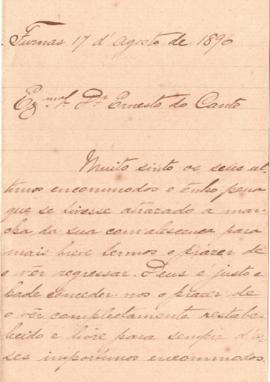 Furnas 17 d'agosto de 1896
Ex.mo Sr. Dr. Ernesto do Canto
Muito sinto os seus ul-
timos encommodos e tenho pena
que se tivesse atrazado a mar-
cha da sua convalescença para
mais breve termos o prazer de
o vêr regressar. Deus é justo e
hade conceder-nos o prazer de
o vêr completamente restabe-
lecido e livre para sempre d'es-
ses importunos encommodos.